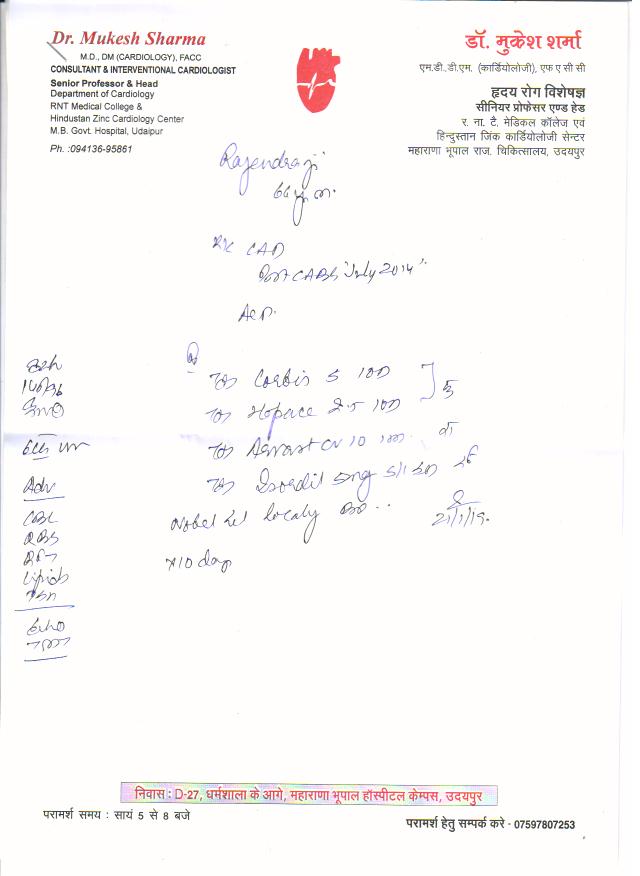 Dr. Mukesh Sharma
M.D., DM (CARDIOLOGY), FACC
CONSULTANT & INTERVENTIONAL CARDIOLOGIST
Senior Professor & Head
Department of Cardiology
RNT Medical College &
Hindustan Zinc Cardiology Center
M.B. Govt. Hospital, Udaipur
Ph. :094136-95861
डॉ. मुकेश शर्मा
एम.डी.,डी.एम. (कार्डियोलॉजी), एफ ए सी सी
हृदय रोग विशेषज्ञ
सीनियर प्रोफेसर एण्ड हेड
र. ना. टै. मेडिकल कॉलेज एवं
हिन्दुस्तान जिंक कार्डियोलॉजी सेन्टर
महाराणा भूपाल राज. चिकित्सालय, उदयपुर
Rajendra ji
CAD
Post CABG "July 2014"
Corbis 5 1OD
Hopace 2.5 1OD
CV 10
Isordil 5mg S/L
Nobel gel localy
x10 day
21/1/19.
140/96
Adv
CBC
RBS
RFT
Lipids
TSH
Echo
TMT
निवास : D-27, धर्मशाला के आगे, महाराणा भूपाल हॉस्पीटल केम्पस, उदयपुर
परामर्श समय : सायं 5 से 8 बजे
परामर्श हेतु सम्पर्क करे - 07597807253